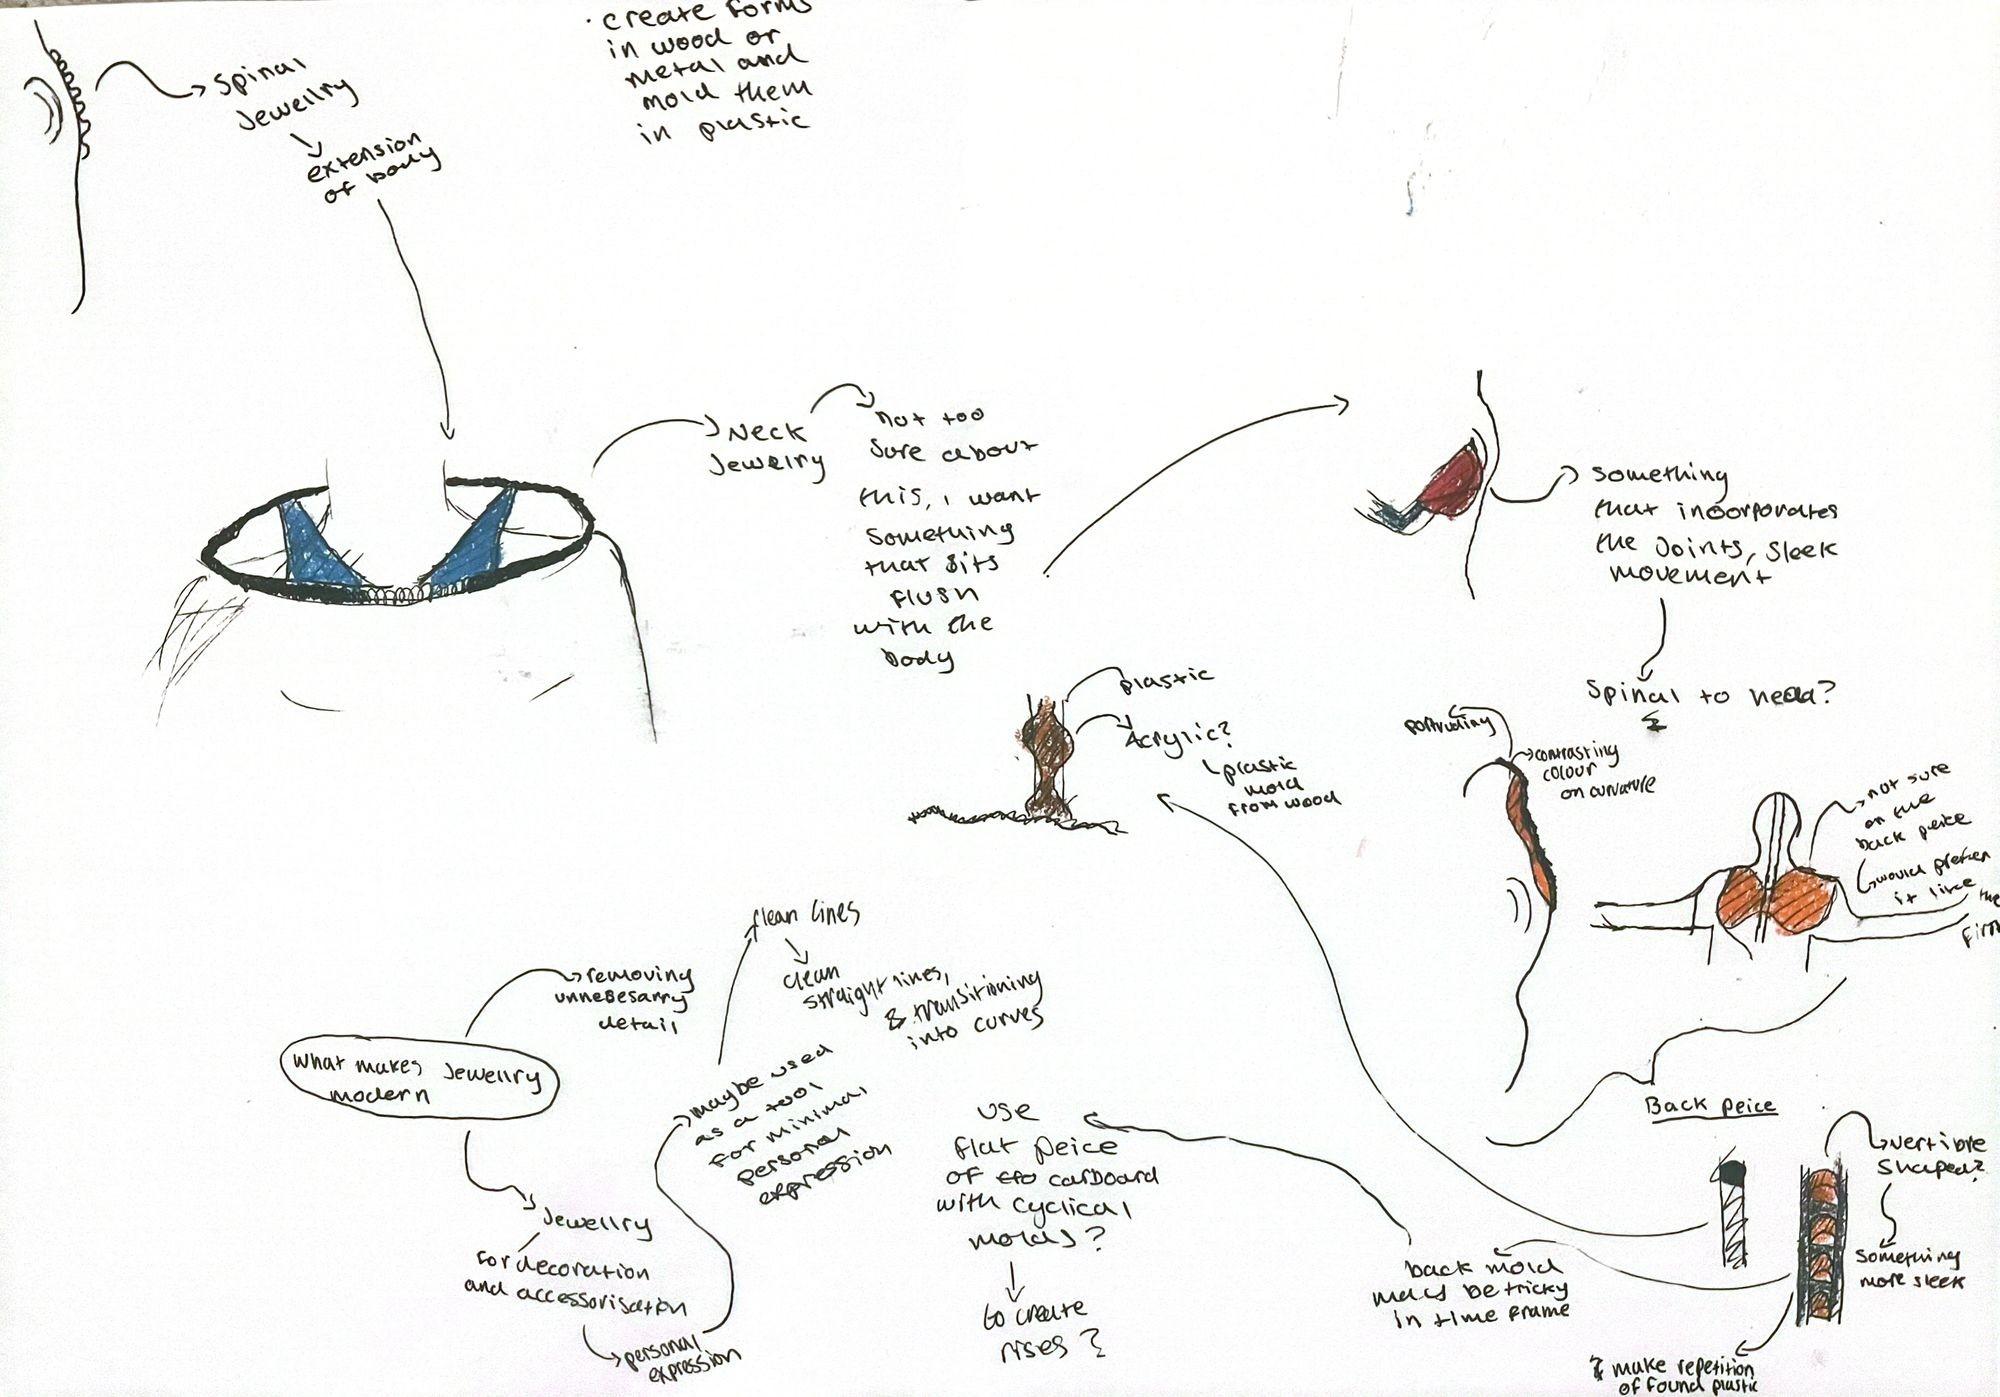 · create forms
in wood or
metal and
mold them
in plastic
Spinal
Jewellry
extension
of body
Neck
Jewelry
not too
sure about
this, i want
something
that sits
flush
with the
body
something
that incorporates
the Joints, sleek
movement
Spinal to head?
plastic
Acrylic?
plastic
mold
from wood
portruding
contrasting
colour
on curvature
not sure
on the
back peice
would prefer
it like
the
first
Back peice
vertibre
shaped?
something
more sleek
& make repetition
of found plastic
back mold
may be tricky
in time frame
use
flat peice
of cardboard
with cyclical
molds?
to create
rises?
What makes Jewellry
modern
removing
unnebesarry
detail
Jewellry
for decoration
and accessorisation
personal
expression
maybe used
as a tool
for minimal
personal
expression
clean lines
clean
straight lines,
& transitioning
into curves